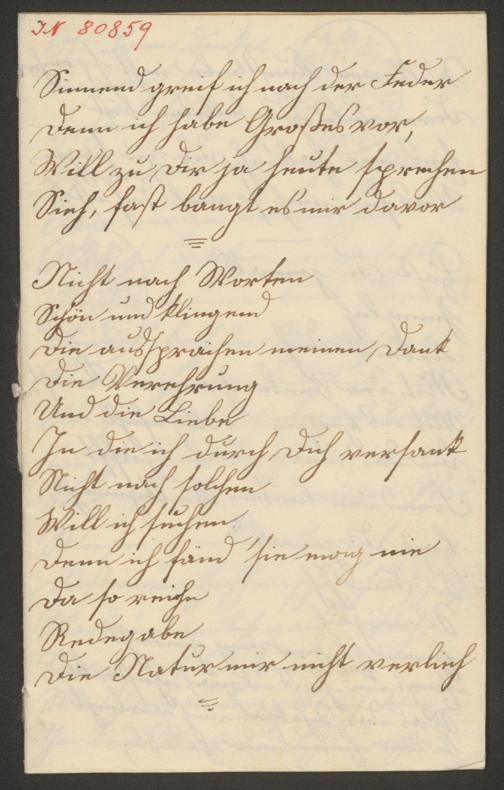 IN 80859
Sinnend greif ich nach der Feder
Denn ich habe Großes vor,
Will zu Dir ja heute sprechen
Sieh, fast bangt es mir davor
Nicht nach Worten
Schön und klingend
Die aussprächen meinen Dank
Die Verehrung
Und die Liebe
In die ich durch Dich versank
Nicht nach solchen
Will ich suchen
Denn ich fänd' sie ewig nie
Da so reiche
Redegabe
Die Natur mir nicht verlieh